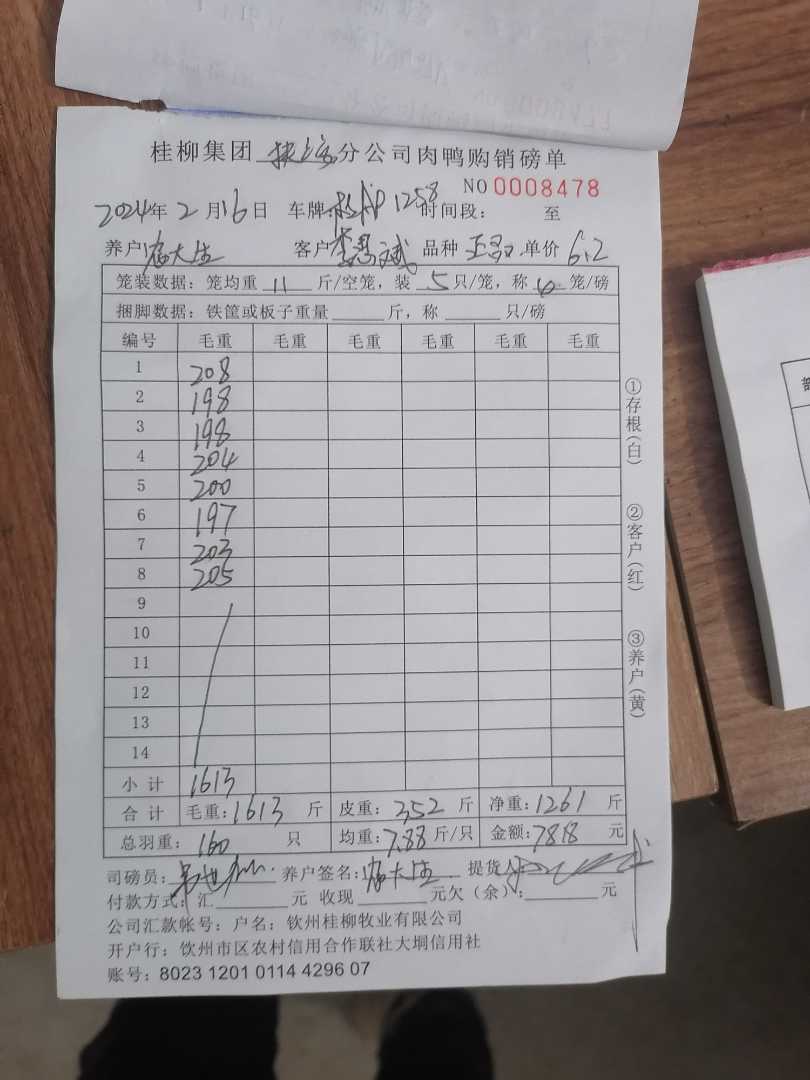 桂柳集团 分公司肉鸭购销磅单
NO 0008478
2024年2月16日 车牌: 1258 时间段: 至
养户 大生 客户 李 斌 品种 单价 6.2
笼装数据: 笼均重 11 斤/空笼, 装 5 只/笼, 称 4 笼/磅
捆脚数据: 铁筐或板子重量 斤, 称 只/磅
编号 毛重 毛重 毛重 毛重 毛重 毛重
1 208
2 198
3 198
4 204
5 200
6 197
7 203
8 205
9
10
11
12
13
14
小计 1613
合计 毛重: 1613 斤 皮重: 352 斤 净重: 1261 斤
总羽重: 160 只 均重: 7.88 斤/只 金额: 7818 元
司磅员: 养户签名: 大生 提货
付款方式: 汇 元 收现 元欠(余): 元
公司汇款帐号: 户名: 钦州桂柳牧业有限公司
开户行: 钦州市区农村信用合作联社大垌信用社
账号: 8023 1201 0114 4296 07
①存根(白)
②客户(红)
③养户(黄)